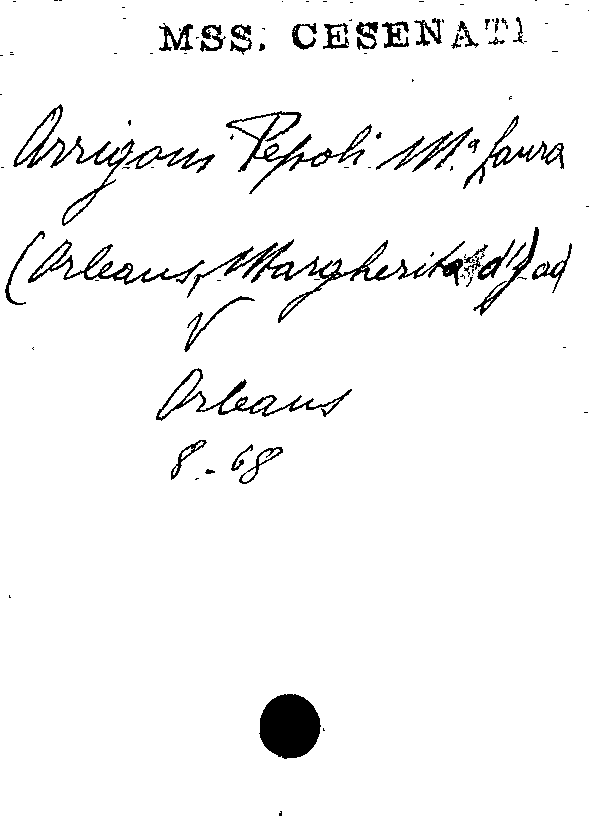 MSS. CESENATI
Arrigoni Pepoli M.ª Laura
(Orleans, Margherita d') ad
V
Orleans
8-68